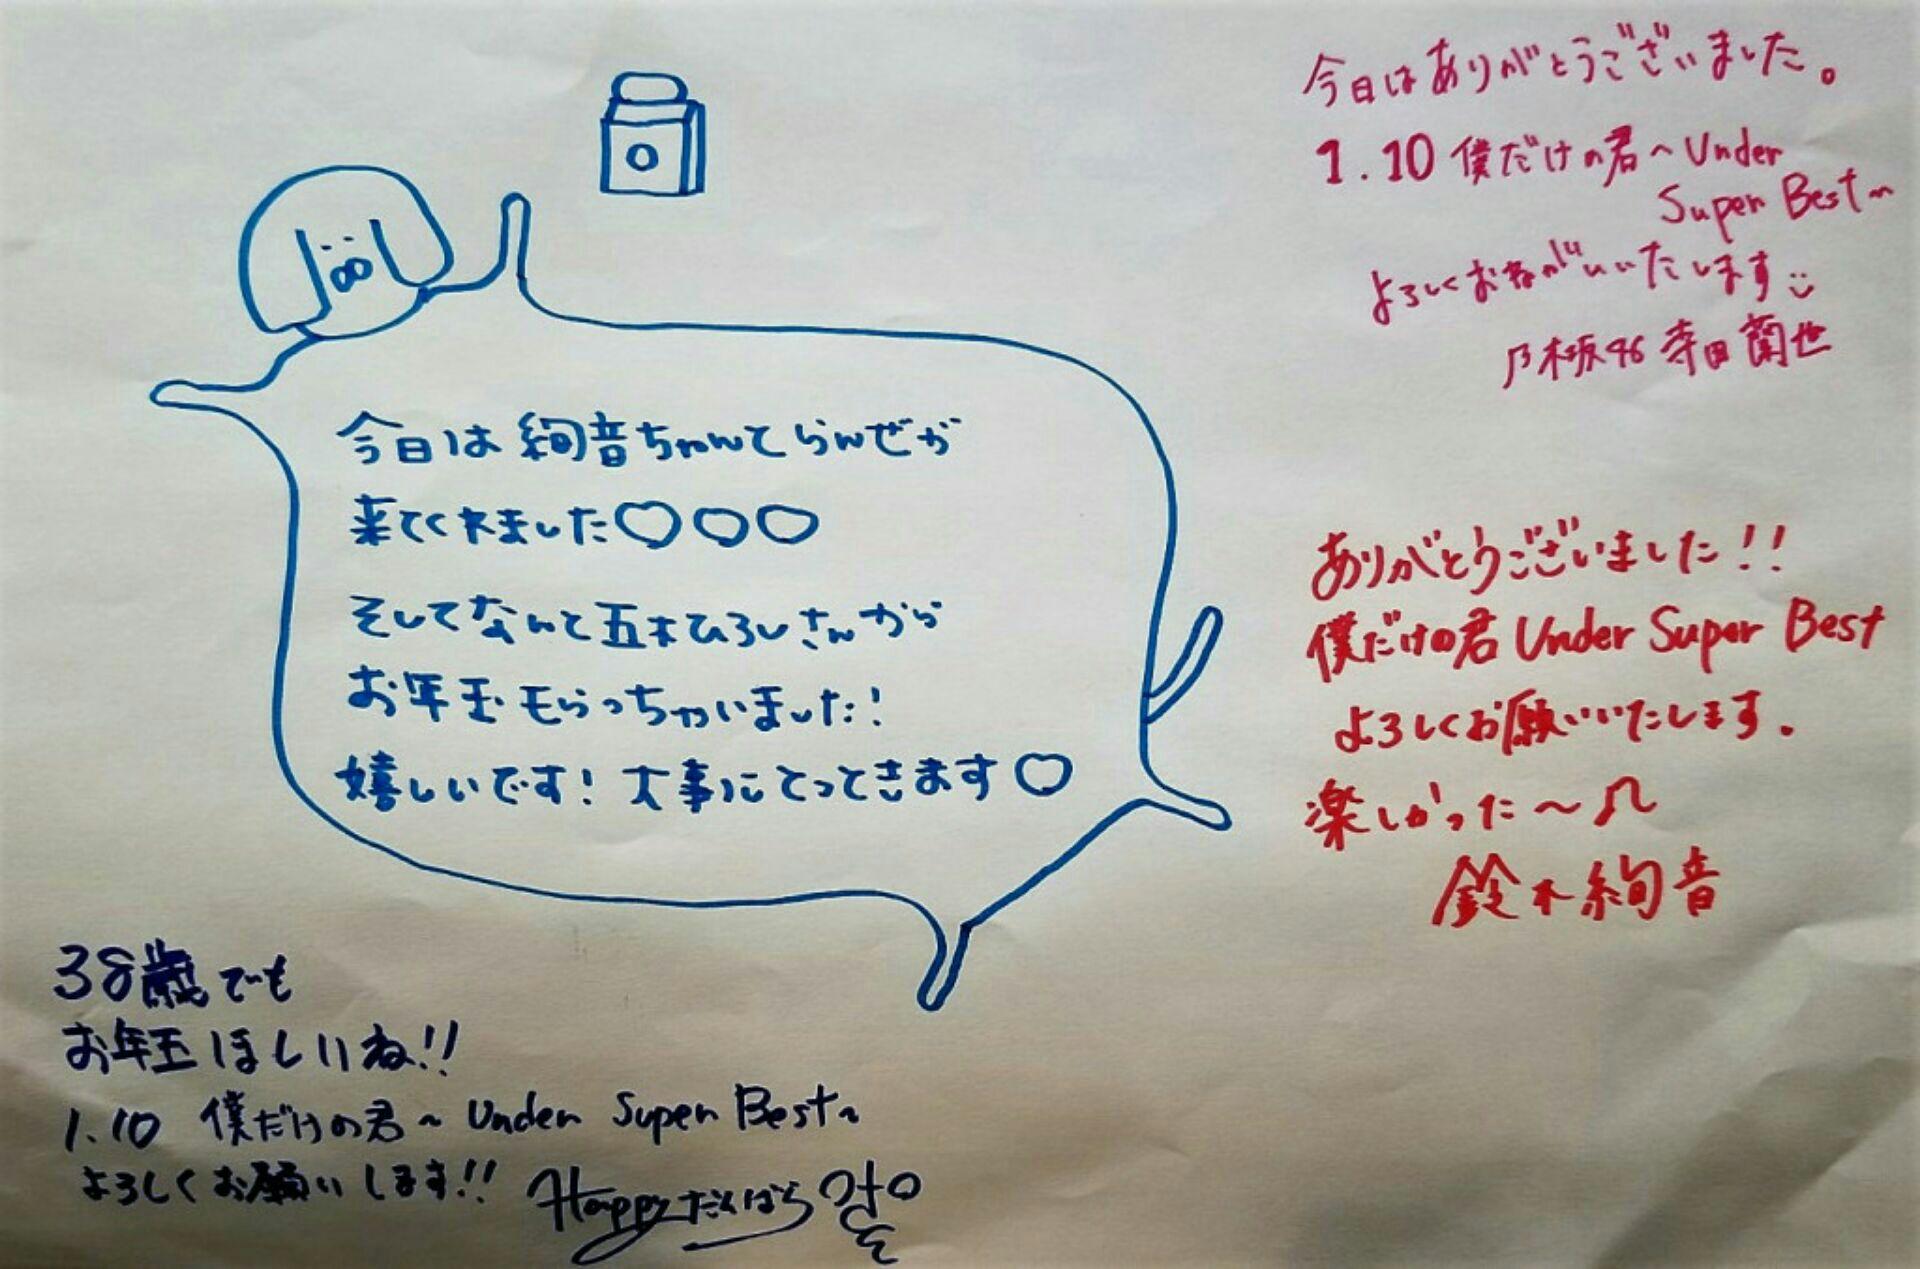 今日は絢音ちゃんとらんぜが
来てくれました♡♡♡
そしてなんと五木ひろしさんから
お年玉もらっちゃいました!
嬉しいです! 大事にとっときます♡
今日はありがとうございました。
1.10 僕だけの君〜Under
Super Best〜
よろしくおねがいいたします
乃木坂46 寺田蘭世
ありがとうございました!!
僕だけの君 Under Super Best
よろしくお願いいたします.
楽しかった〜
鈴木絢音
38歳でも
お年玉ほしいね!!
1.10 僕だけの君〜Under Super Best〜
よろしくお願いします!!
Happyだんばら